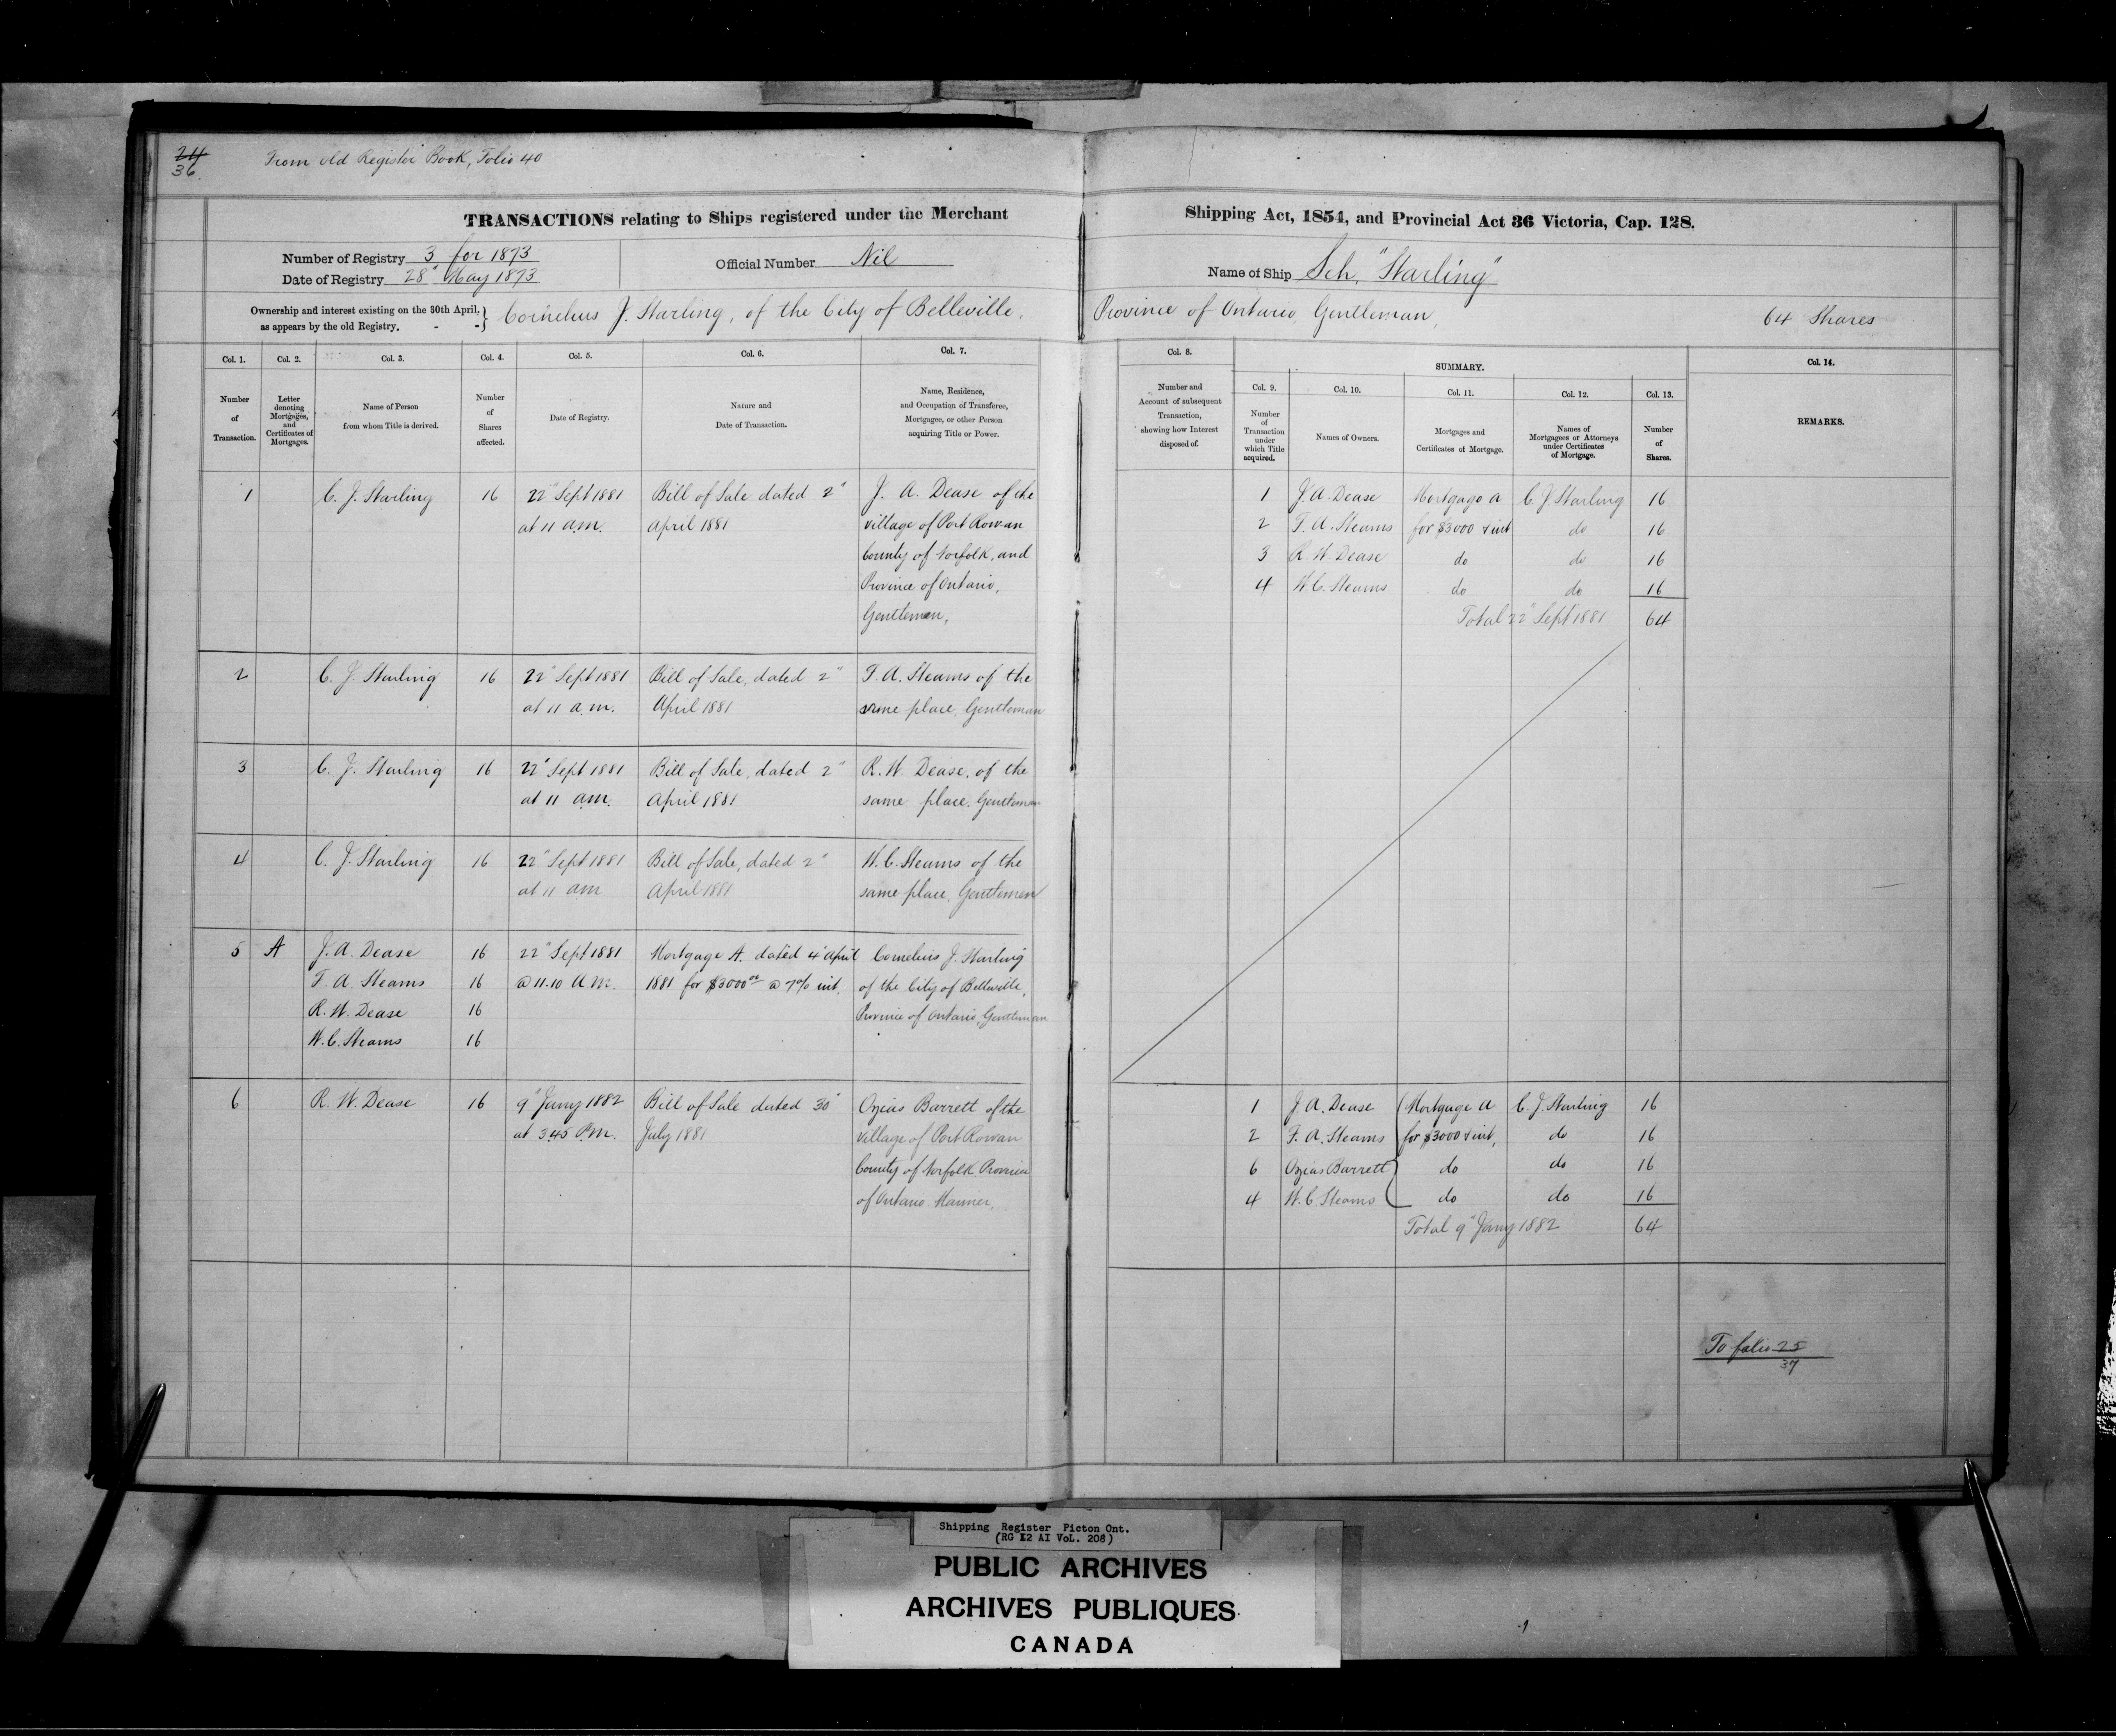 24
36.
From old Register Book, Folio 40
TRANSACTIONS relating to Ships registered under the Merchant Shipping Act, 1854, and Provincial Act 36 Victoria, Cap. 128.
Number of Registry 3 for 1873
Date of Registry 28" May 1873
Official Number Nil
Name of Ship Sch. "Starling"
Ownership and interest existing on the 30th April,
as appears by the old Registry. - -
Cornelius J. Starling, of the City of Belleville, Province of Ontario, Gentleman, 64 Shares
Col. 1.
Number
of
Transaction.
Col. 2.
Letter
denoting
Mortgages,
and
Certificates of
Mortgages.
Col. 3.
Name of Person
from whom Title is derived.
Col. 4.
Number
of
Shares
affected.
Col. 5.
Date of Registry.
Col. 6.
Nature and
Date of Transaction.
Col. 7.
Name, Residence,
and Occupation of Transferee,
Mortgagee, or other Person
acquiring Title or Power.
Col. 8.
Number and
Account of subsequent
Transaction,
showing how Interest
disposed of.
SUMMARY.
Col. 9.
Number
of
Transaction
under
which Title
acquired.
Col. 10.
Names of Owners.
Col. 11.
Mortgages and
Certificates of Mortgage.
Col. 12.
Names of
Mortgagees or Attorneys
under Certificates
of Mortgage.
Col. 13.
Number
of
Shares.
Col. 14.
REMARKS.
1 C. J. Starling 16 22" Sept 1881 Bill of Sale dated 2" J. A. Dease of the
at 11 a.m. April 1881 village of Port Rowan
County of Norfolk, and
Province of Ontario,
Gentleman,
2 C. J. Starling 16 22" Sept 1881 Bill of Sale, dated 2" F. A. Stearns of the
at 11 a.m. April 1881 same place, Gentleman
3 C. J. Starling 16 22" Sept 1881 Bill of Sale, dated 2" R. W. Dease, of the
at 11 am. April 1881 same place. Gentleman
4 C. J. Starling 16 22" Sept 1881 Bill of Sale, dated 2" W. C. Stearns of the
at 11 am April 1881 same place, Gentleman
5 A J. A. Dease 16 22" Sept 1881 Mortgage A. dated 4" April Cornelius J. Starling
F. A. Stearns 16 @ 11.10 a.m. 1881 for $3000.00 @ 7% int. of the City of Belleville,
R. W. Dease 16 Province of Ontario, Gentleman
W. C. Stearns 16
6 R. W. Dease 16 9" Jany 1882 Bill of Sale dated 30" Ozias Barrett of the
at 3.45 P.m. July 1881 village of Port Rowan
County of Norfolk Province
of Ontario Mariner,
1 J. A. Dease Mortgage A C. J. Starling 16
2 F. A. Stearns for $3000 & int do 16
3 R. W. Dease do do 16
4 W. C. Stearns do do 16
Total 22" Sept 1881 64
1 J. A. Dease Mortgage A C. J. Starling 16
2 F. A. Stearns for $3000 & int, do 16
6 Ozias Barrett do do 16
4 W. C. Stearns do do 16
Total 9" Jany 1882 64
To folio 25
37
Shipping Register Picton Ont.
(RG 12 AI VoL. 208)
PUBLIC ARCHIVES
ARCHIVES PUBLIQUES
CANADA